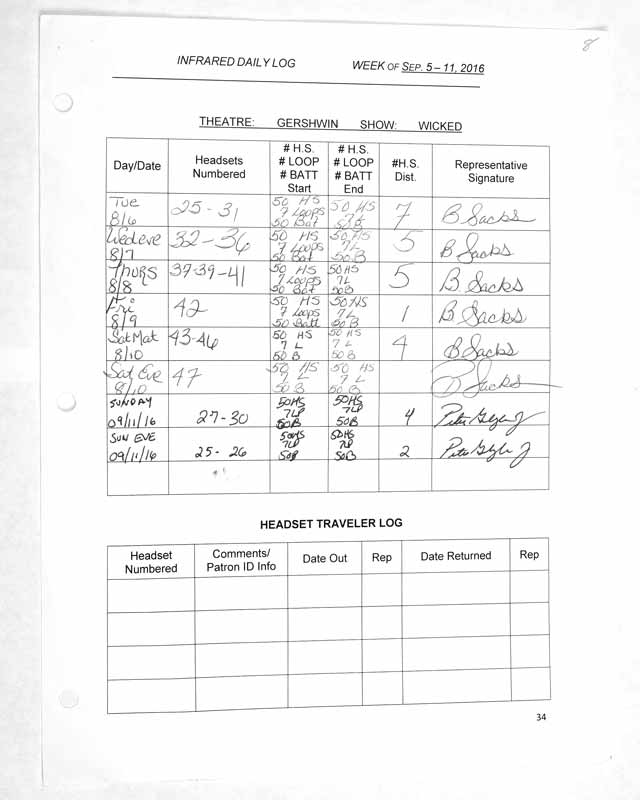 8
INFRARED DAILY LOG WEEK OF SEP. 5 – 11, 2016
THEATRE: GERSHWIN SHOW: WICKED
Day/Date Headsets Numbered # H.S. # LOOP # BATT Start # H.S. # LOOP # BATT End #H.S. Dist. Representative Signature
Tue 8/6 25-31 50 HS 7 Loops 50 Bat 50 HS 7 L 50 B 7 B Sacks
Wed eve 8/7 32-36 50 HS 7 Loops 50 Bat 50 HS 7L 50 B 5 B Sacks
Thurs 8/8 37-39-41 50 HS 7 Loops 50 Bat 50 HS 7L 50B 5 B Sacks
Fri 8/9 42 50 HS 7 Loops 50 Batt 50 HS 7L 50 B 1 B Sacks
Sat Mat 8/10 43-46 50 HS 7 L 50 B 50 HS 7 L 50 B 4 B Sacks
Sat Eve 8/10 47 50 HS 7 L 50 B 50 HS 7 L 50 B B Sacks
SUNDAY 09/11/16 27-30 50HS 7LP 50B 50HS 7LP 50B 4
SUN EVE 09/11/16 25-26 50HS 7LP 50B 50HS 7LP 50B 2
HEADSET TRAVELER LOG
Headset Numbered Comments/ Patron ID Info Date Out Rep Date Returned Rep
34